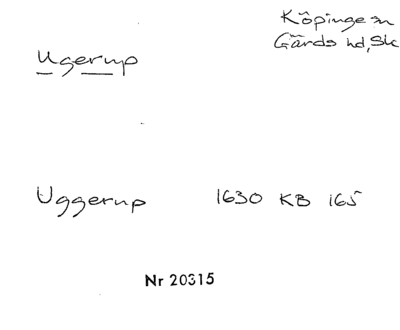 Köpinge sn
Gärds hd, Sk
Ugerup
Uggerup 1630 KB 165
Nr 20315